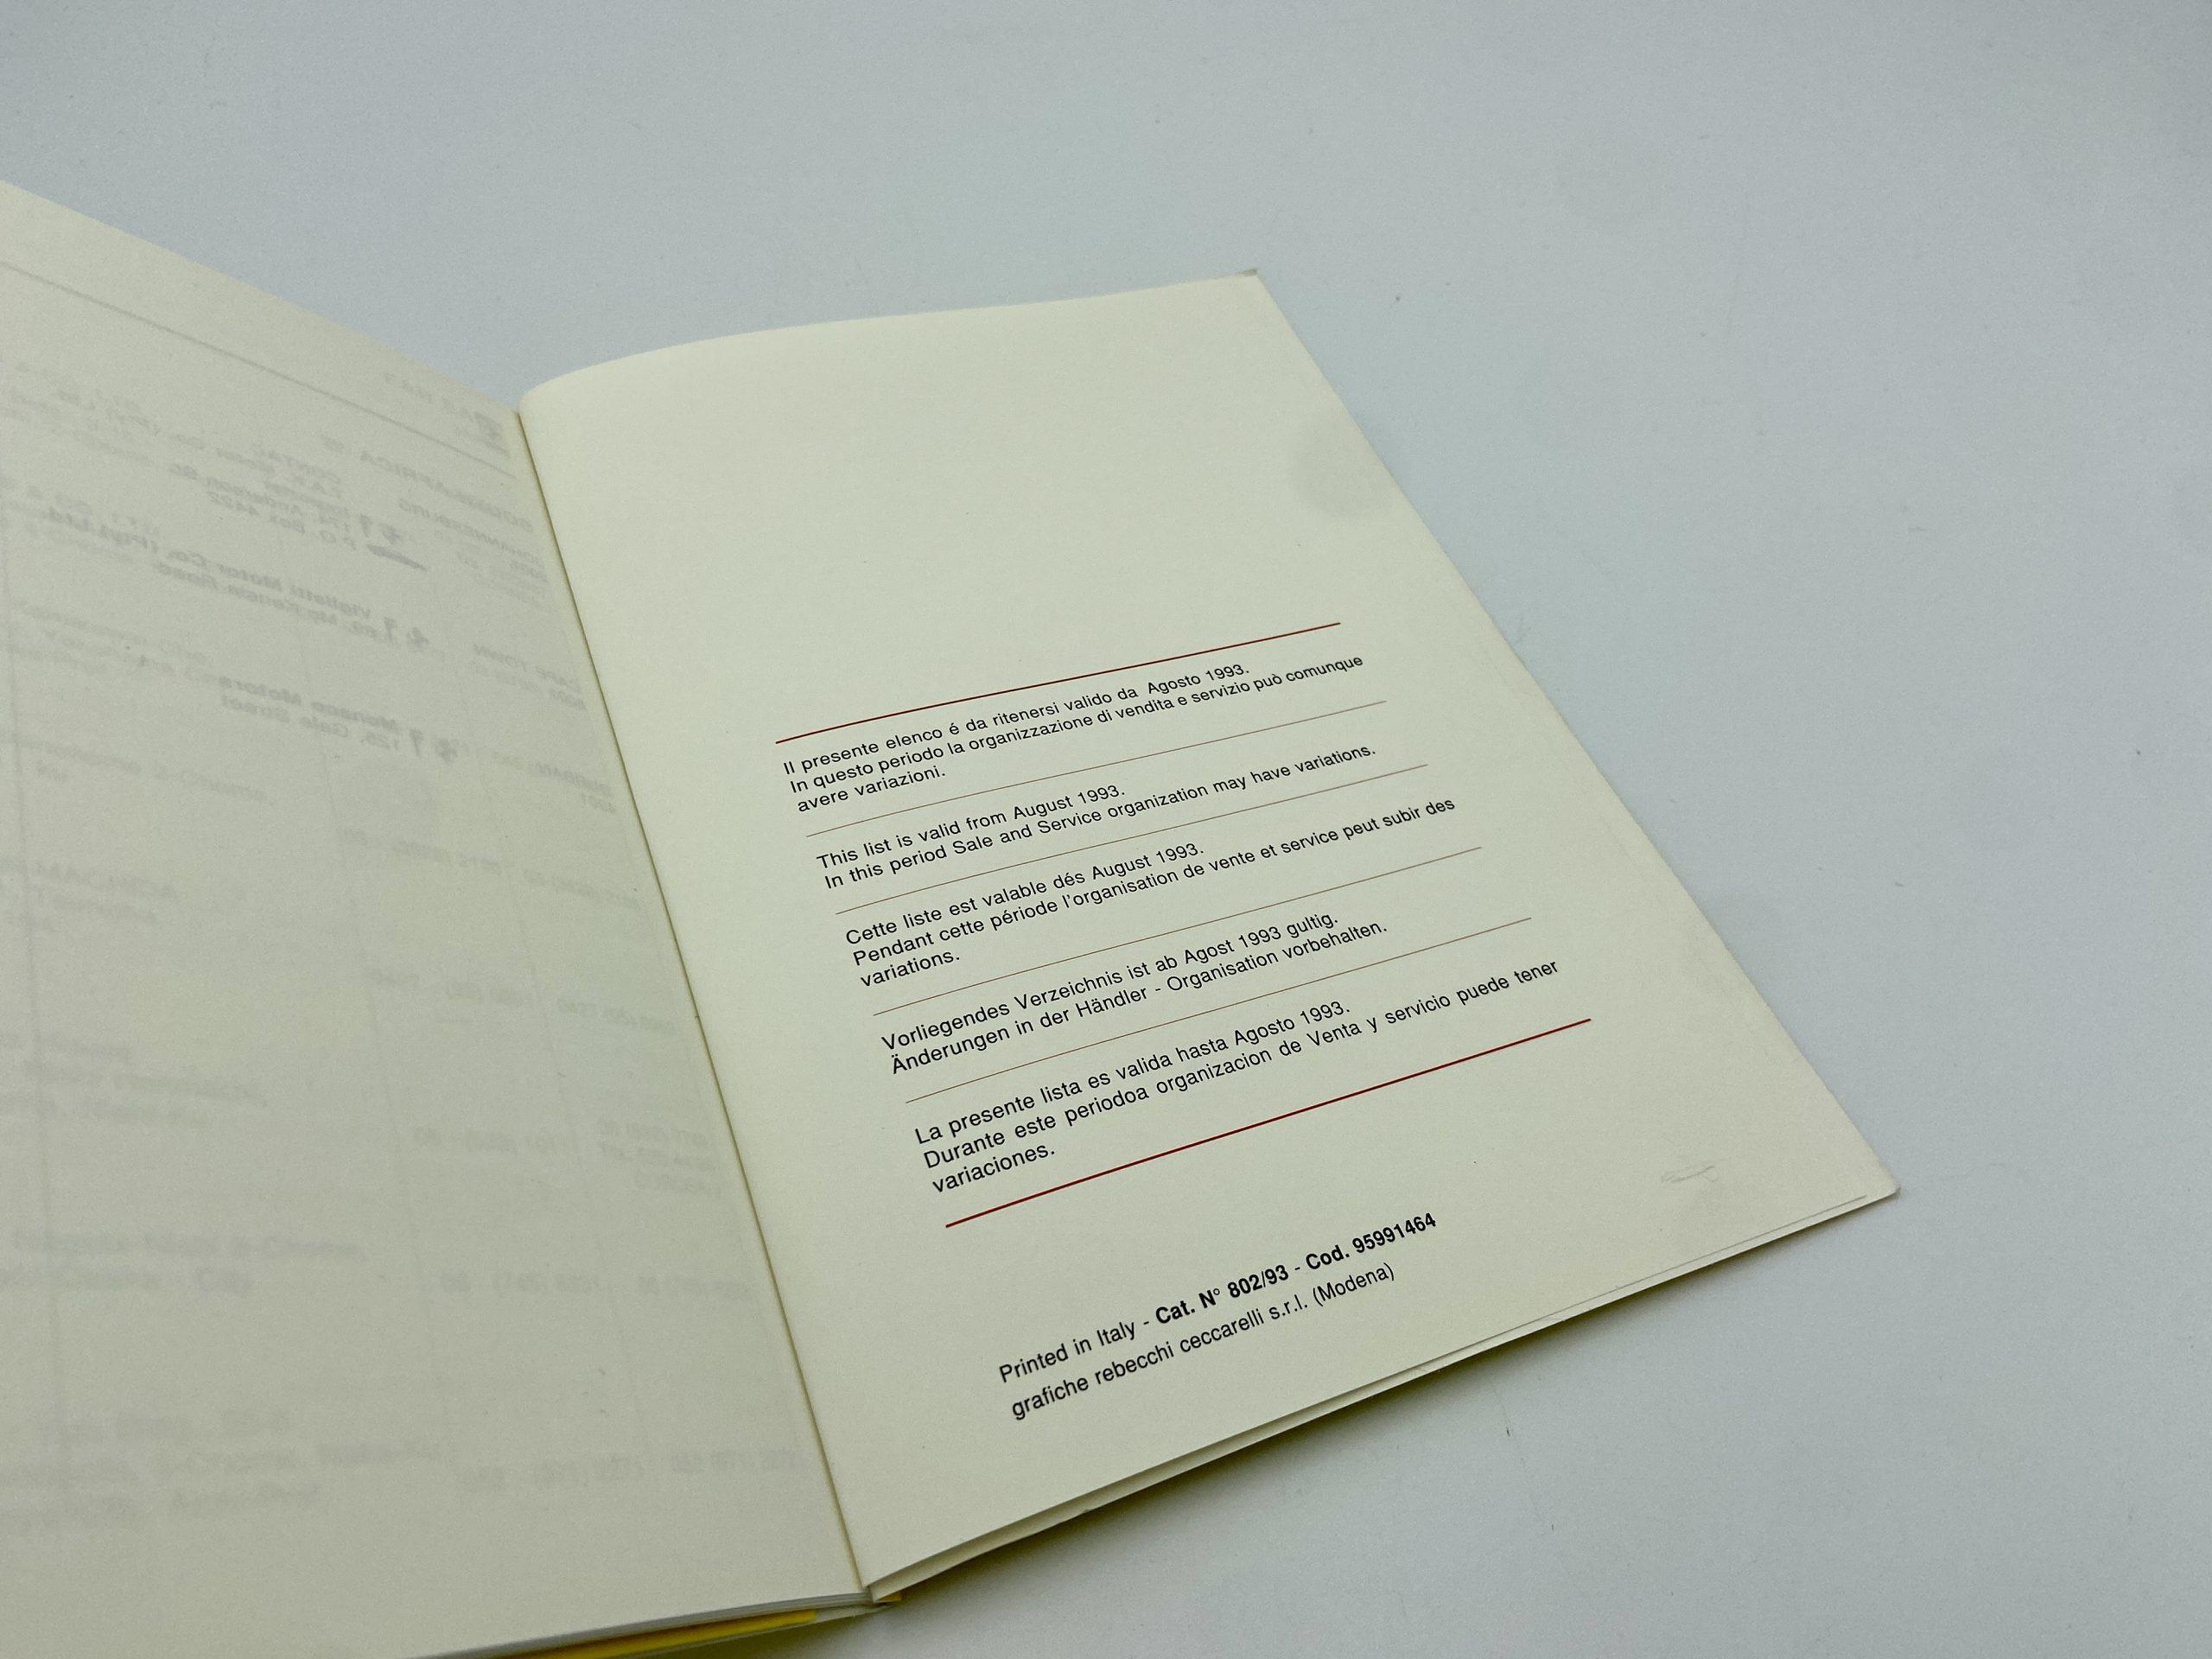 Il presente elenco é da ritenersi valido da Agosto 1993.
In questo periodo la organizzazione di vendita e servizio può comunque
avere variazioni.
This list is valid from August 1993.
In this period Sale and Service organization may have variations.
Cette liste est valable dés August 1993.
Pendant cette période l'organisation de vente et service peut subir des
variations.
Vorliegendes Verzeichnis ist ab Agost 1993 gultig.
Änderungen in der Händler - Organisation vorbehalten.
La presente lista es valida hasta Agosto 1993.
Durante este periodoa organizacion de Venta y servicio puede tener
variaciones.
Printed in Italy - Cat. N° 802/93 - Cod. 95991464
grafiche rebecchi ceccarelli s.r.l. (Modena)